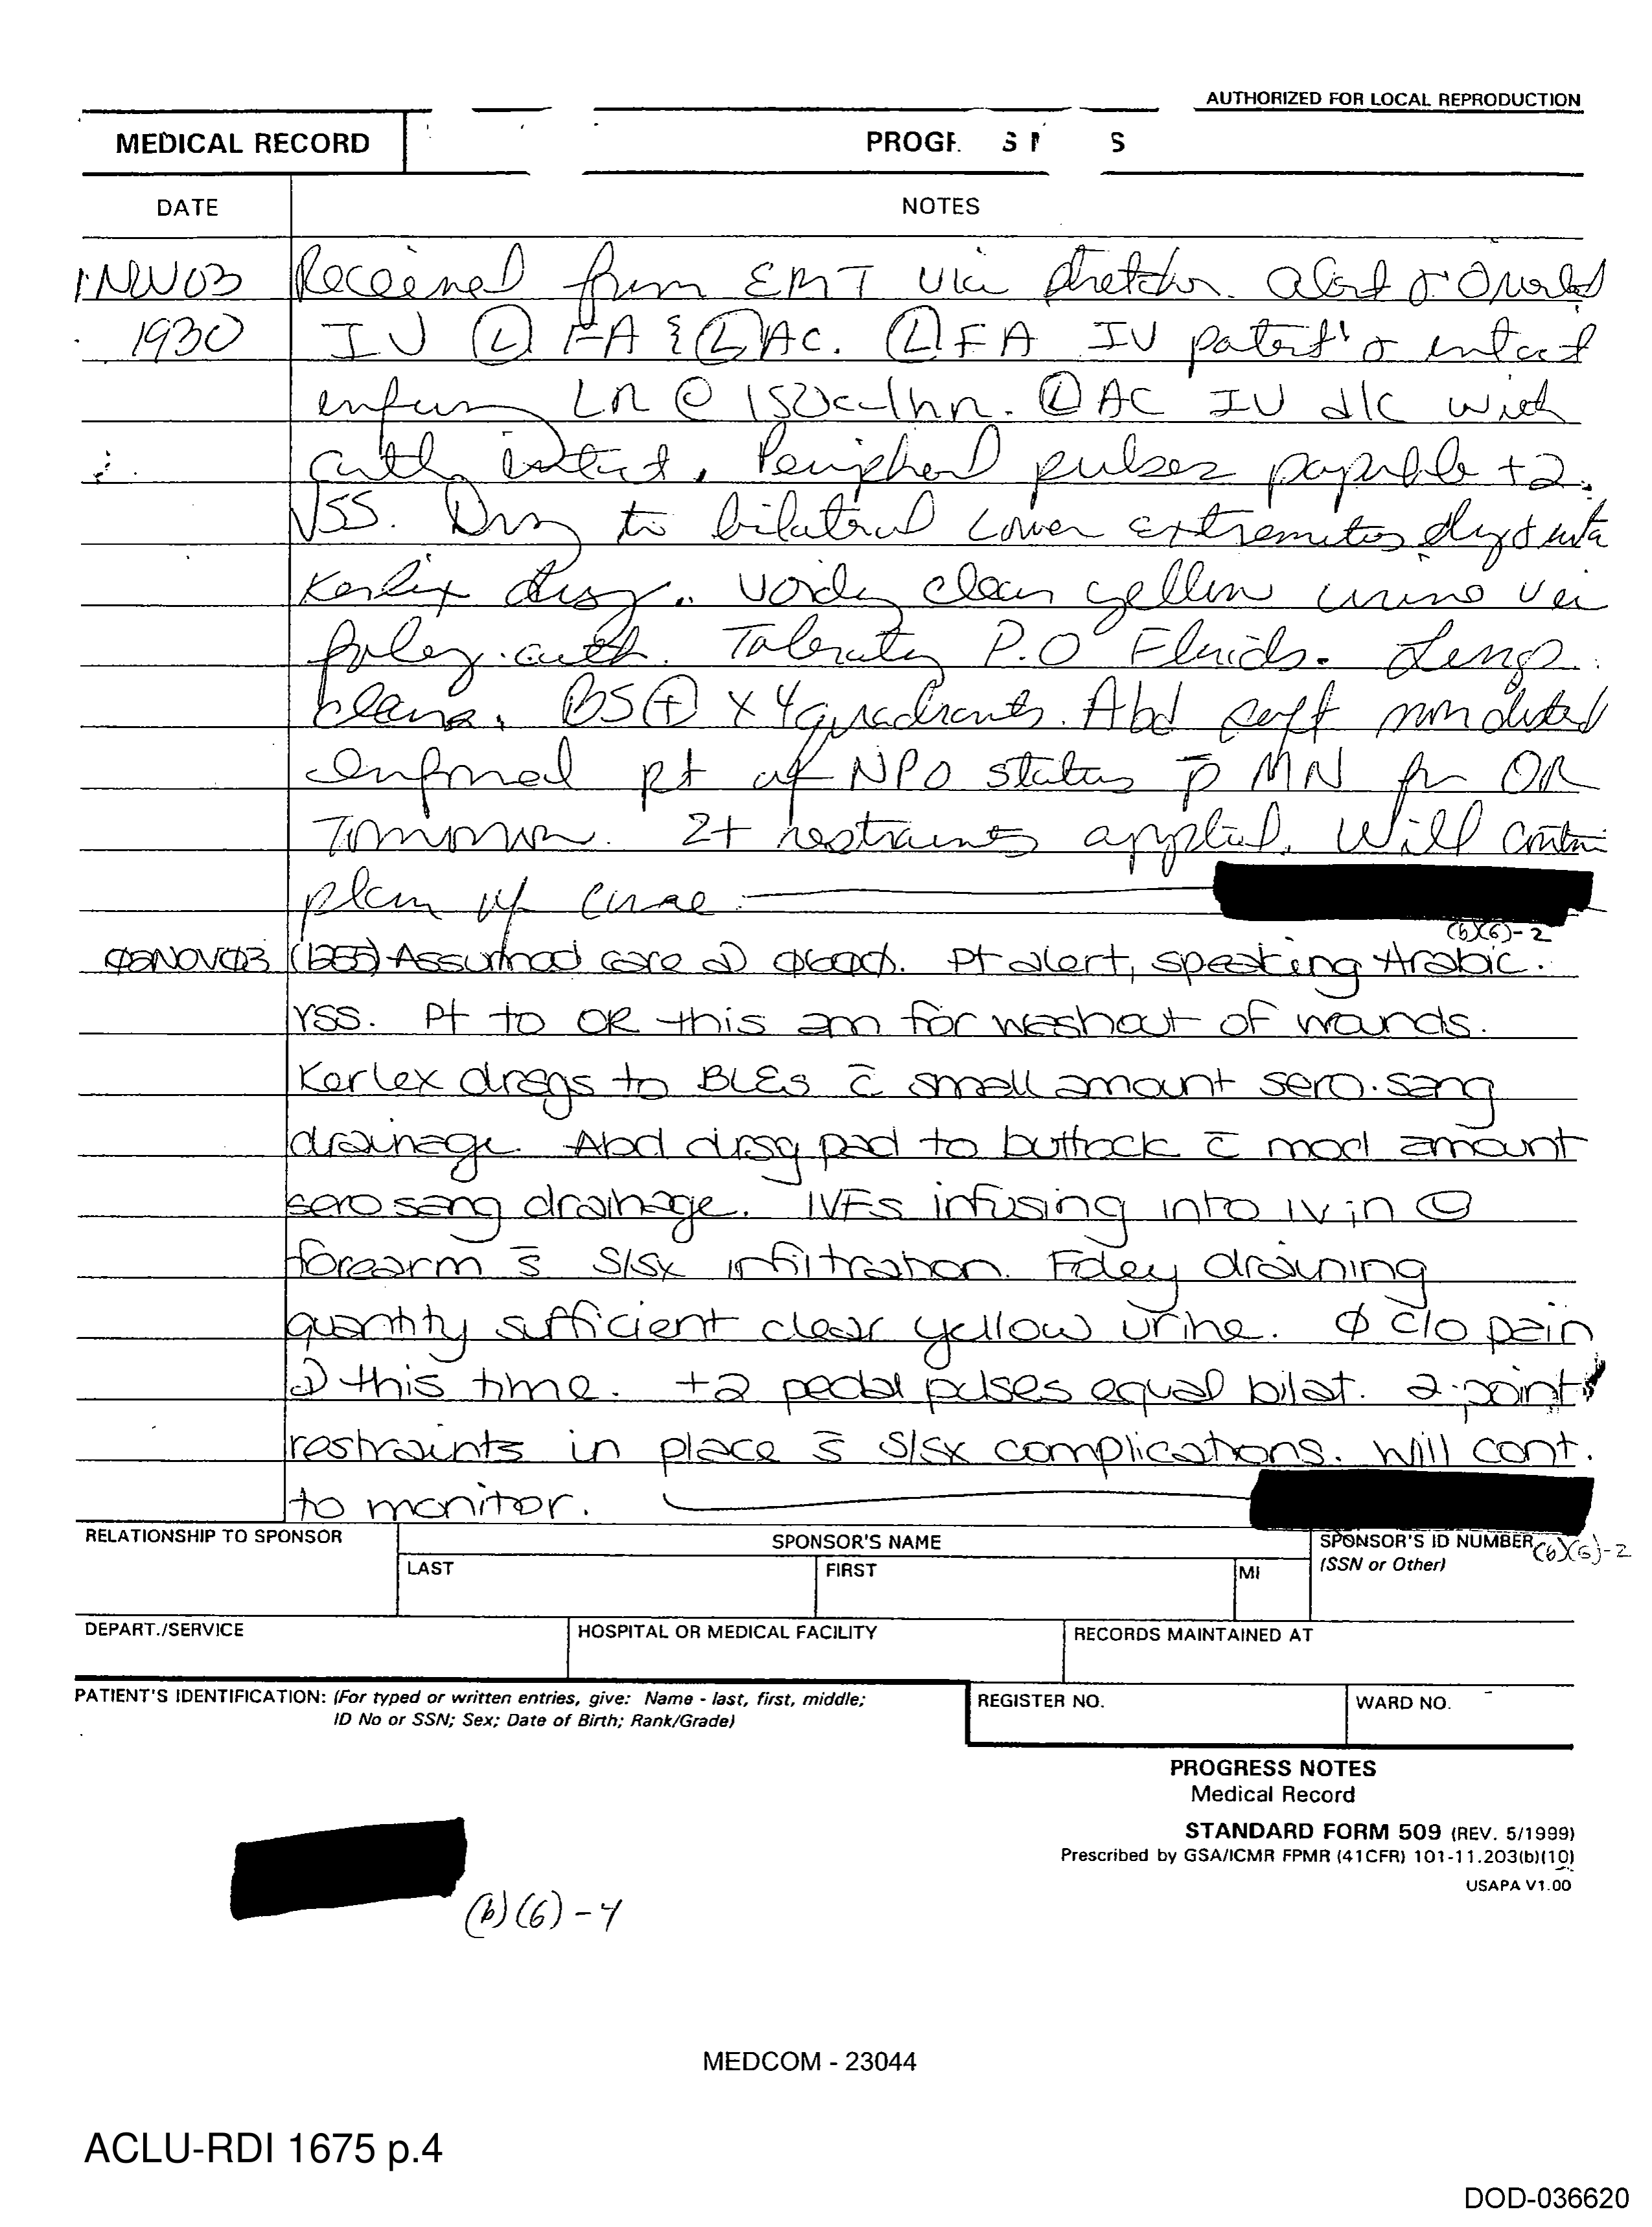 AUTHORIZED FOR LOCAL REPRODUCTION
MEDICAL RECORD
DATE
NOTES
1930
Received from EMT via stretcher. alert &
IV Ⓛ FA & Ⓛ AC. Ⓛ FA IV patent & intact
LR @ 150cc/hr. Ⓛ AC IV d/c with
cath intact. Peripheral pulses +2.
VSS. to bilateral Lower extremites
Kerlix drsg. voiding clear yellow urine via
foley cath. Tolerating P.O Fluids. Lungs
BS⊕ x 4 quadrants. Abd soft
Informed pt of NPO status p̄ MN for OR
Tomorrow. restraints applied. Will
plan of care
(b)(6)-2
Ø2NOV03 Assumed care @ Ø600. Pt alert, speaking Arabic.
VSS. Pt to OR this am for washout of wounds.
Kerlex drsgs to BLEs c̄ small amount sero-sang
drainage. Abd drsg pad to buttock c̄ mod amount
sero sang drainage. IVFs infusing into IV in Ⓛ
forearm s̄ S/Sx infiltration. Foley draining
quantity sufficient clear yellow urine. Ø c/o pain
@ this time. +2 pedal pulses equal bilat. 2-point
restraints in place s̄ S/Sx complications. Will cont.
to monitor.
RELATIONSHIP TO SPONSOR
SPONSOR'S NAME
SPONSOR'S ID NUMBER (b)(6)-2
LAST
FIRST
MI
(SSN or Other)
DEPART./SERVICE
HOSPITAL OR MEDICAL FACILITY
RECORDS MAINTAINED AT
PATIENT'S IDENTIFICATION: (For typed or written entries, give: Name - last, first, middle;
ID No or SSN; Sex; Date of Birth; Rank/Grade)
REGISTER NO.
WARD NO.
PROGRESS NOTES
Medical Record
STANDARD FORM 509 (REV. 5/1999)
Prescribed by GSA/ICMR FPMR (41CFR) 101-11.203(b)(10)
USAPA V1.00
(b)(6)-4
MEDCOM - 23044
ACLU-RDI 1675 p.4
DOD-036620